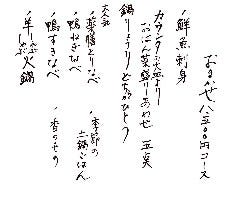 おまかせ八五〇〇円コース
・鮮魚刺身
カウンター大皿より
おばん菜盛りあわせ 五点
鍋りょうりどちらかひとつ
大人気
・薬膳とりなべ
・鴨ねぎなべ
・鴨すきなべ
・羊しゃぶ火鍋
・季節の土鍋ごはん
・香のもの